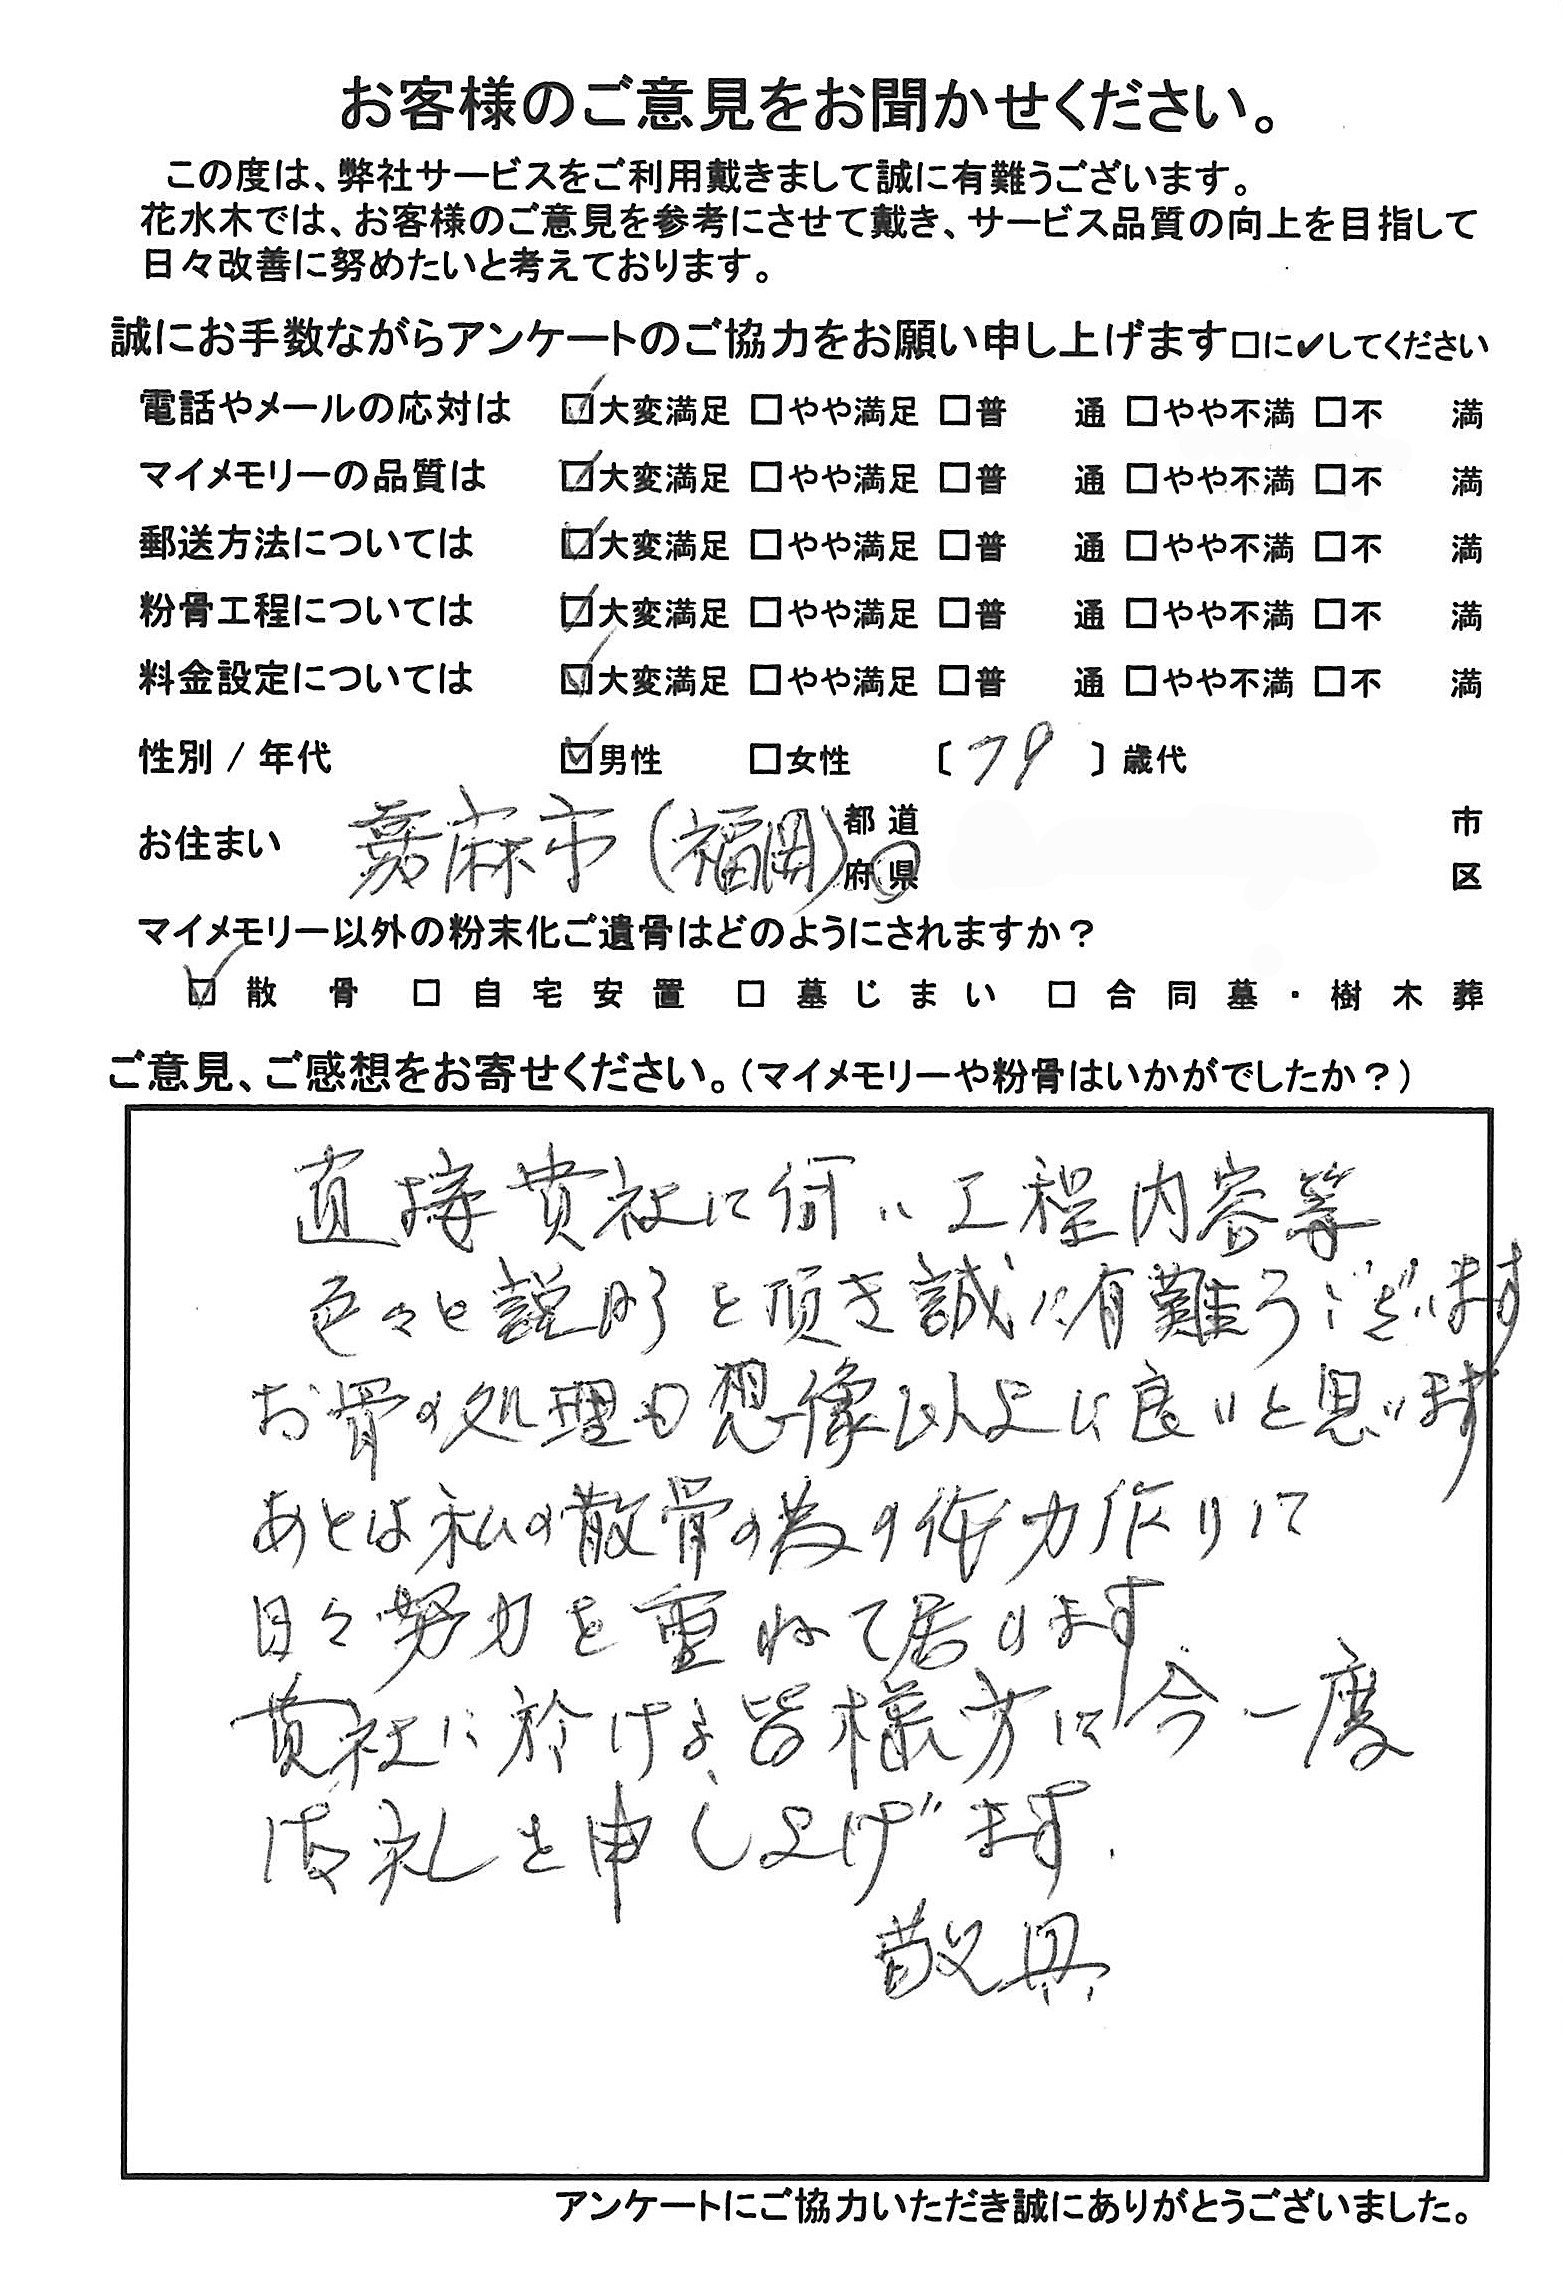 お客様のご意見をお聞かせください。
この度は、弊社サービスをご利用戴きまして誠に有難うございます。
花水木では、お客様のご意見を参考にさせて戴き、サービス品質の向上を目指して
日々改善に努めたいと考えております。
誠にお手数ながらアンケートのご協力をお願い申し上げます□に✔してください
電話やメールの応対は ☑大変満足 □やや満足 □普 通 □やや不満 □不 満
マイメモリーの品質は ☑大変満足 □やや満足 □普 通 □やや不満 □不 満
郵送方法については ☑大変満足 □やや満足 □普 通 □やや不満 □不 満
粉骨工程については ☑大変満足 □やや満足 □普 通 □やや不満 □不 満
料金設定については ☑大変満足 □やや満足 □普 通 □やや不満 □不 満
性別 / 年代 ☑男性 □女性 〔 79 〕歳代
お住まい 嘉麻市(福岡) 都道府県 市区
マイメモリー以外の粉末化ご遺骨はどのようにされますか?
☑ 散骨 □ 自宅安置 □ 墓じまい □ 合同墓・樹木葬
ご意見、ご感想をお寄せください。(マイメモリーや粉骨はいかがでしたか?)
直接貴社に伺い工程内容等
色々と説明を頂き誠に有難うございます
お骨の処理も想像以上に良いと思います
あとは私の散骨の為の体力作りに
日々努力を重ねて居ります
貴社に於ける皆様方に今一度
御礼を申し上げます.
敬具
アンケートにご協力いただき誠にありがとうございました。